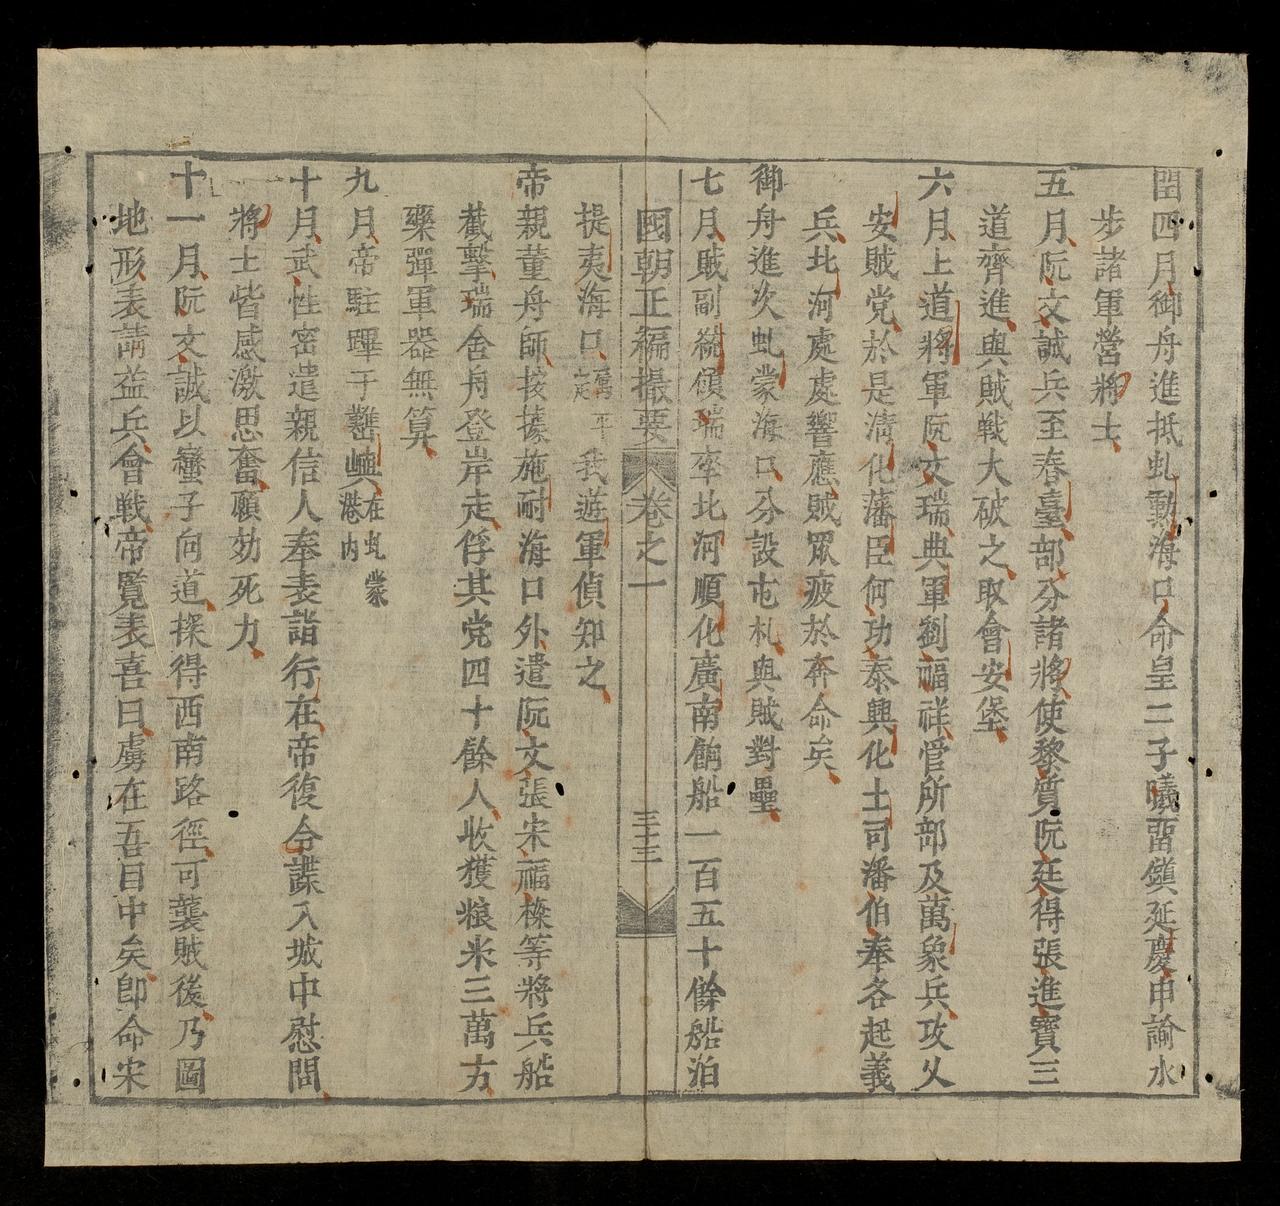 閏四月御舟進抵虬勳海口命皇二子曦畱鎮延慶申諭水
步諸軍營將士
五月阮文誠兵至春臺部分諸將使黎質阮廷得張進寶三
道齊進與賊戰大破之取會安堡
六月上道將軍阮文瑞典軍劉福祥管所部及萬象兵攻乂
安賊党於是清化藩臣何功泰興化土司潘伯奉各起義
兵北河處處響應賊眾疲於奔命矣
御舟進次虬蒙海口分設屯札與賊對壘
七月賊副統領瑞率北河順化廣南餉船一百五十餘船泊
國朝正編撮要 卷之一 三十三
提夷海口 屬平定 我遊軍偵知之
帝親董舟師按據施耐海口外遣阮文張宋福樑等將兵船
截擊瑞舍舟登岸走俘其党四十餘人收獲粮米三萬方
藥彈軍器無算
九月帝駐蹕于艱嶼 在虬蒙港内
十月武性密遣親信人奉表詣行在帝復令諜入城中慰問
將士皆感激思奮願効死力
十一月阮文誠以蠻子向道探得西南路徑可襲賊後乃圖
地形表請益兵會戰帝覽表喜曰虜在吾目中矣卽命宋